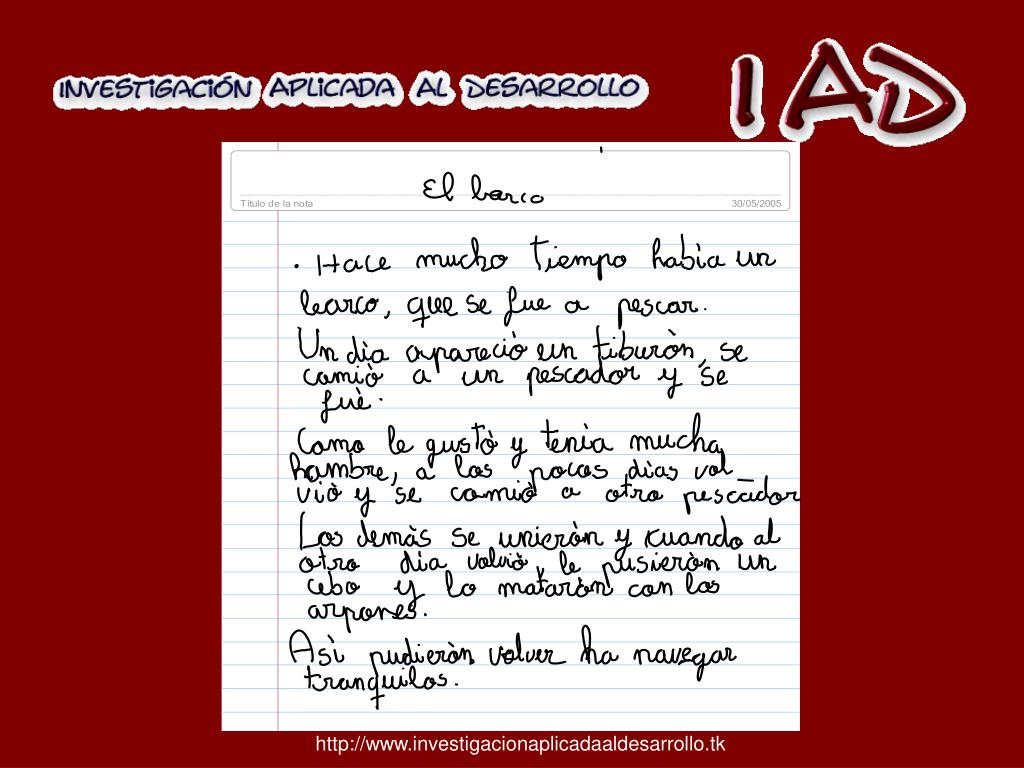 INVESTIGACIÓN APLICADA AL DESARROLLO
IAD
El barco
Título de la nota
30/05/2005
. Hace mucho tiempo había un
barco, que se fue a pescar.
Un dìa apareciò un tiburòn, se
comiò a un pescador y se
fuè.
Como le gustò y tenìa mucha
hambre, a los pocos dìas vol_
viò y se comiò a otro pescador
Los demàs se unieròn y kuando al
otro dìa volviò, le pusieròn un
cebo y lo mataròn con los
arpones.
Asì pudieròn volver ha navegar
tranquilos.
http://www.investigacionaplicadaaldesarrollo.tk